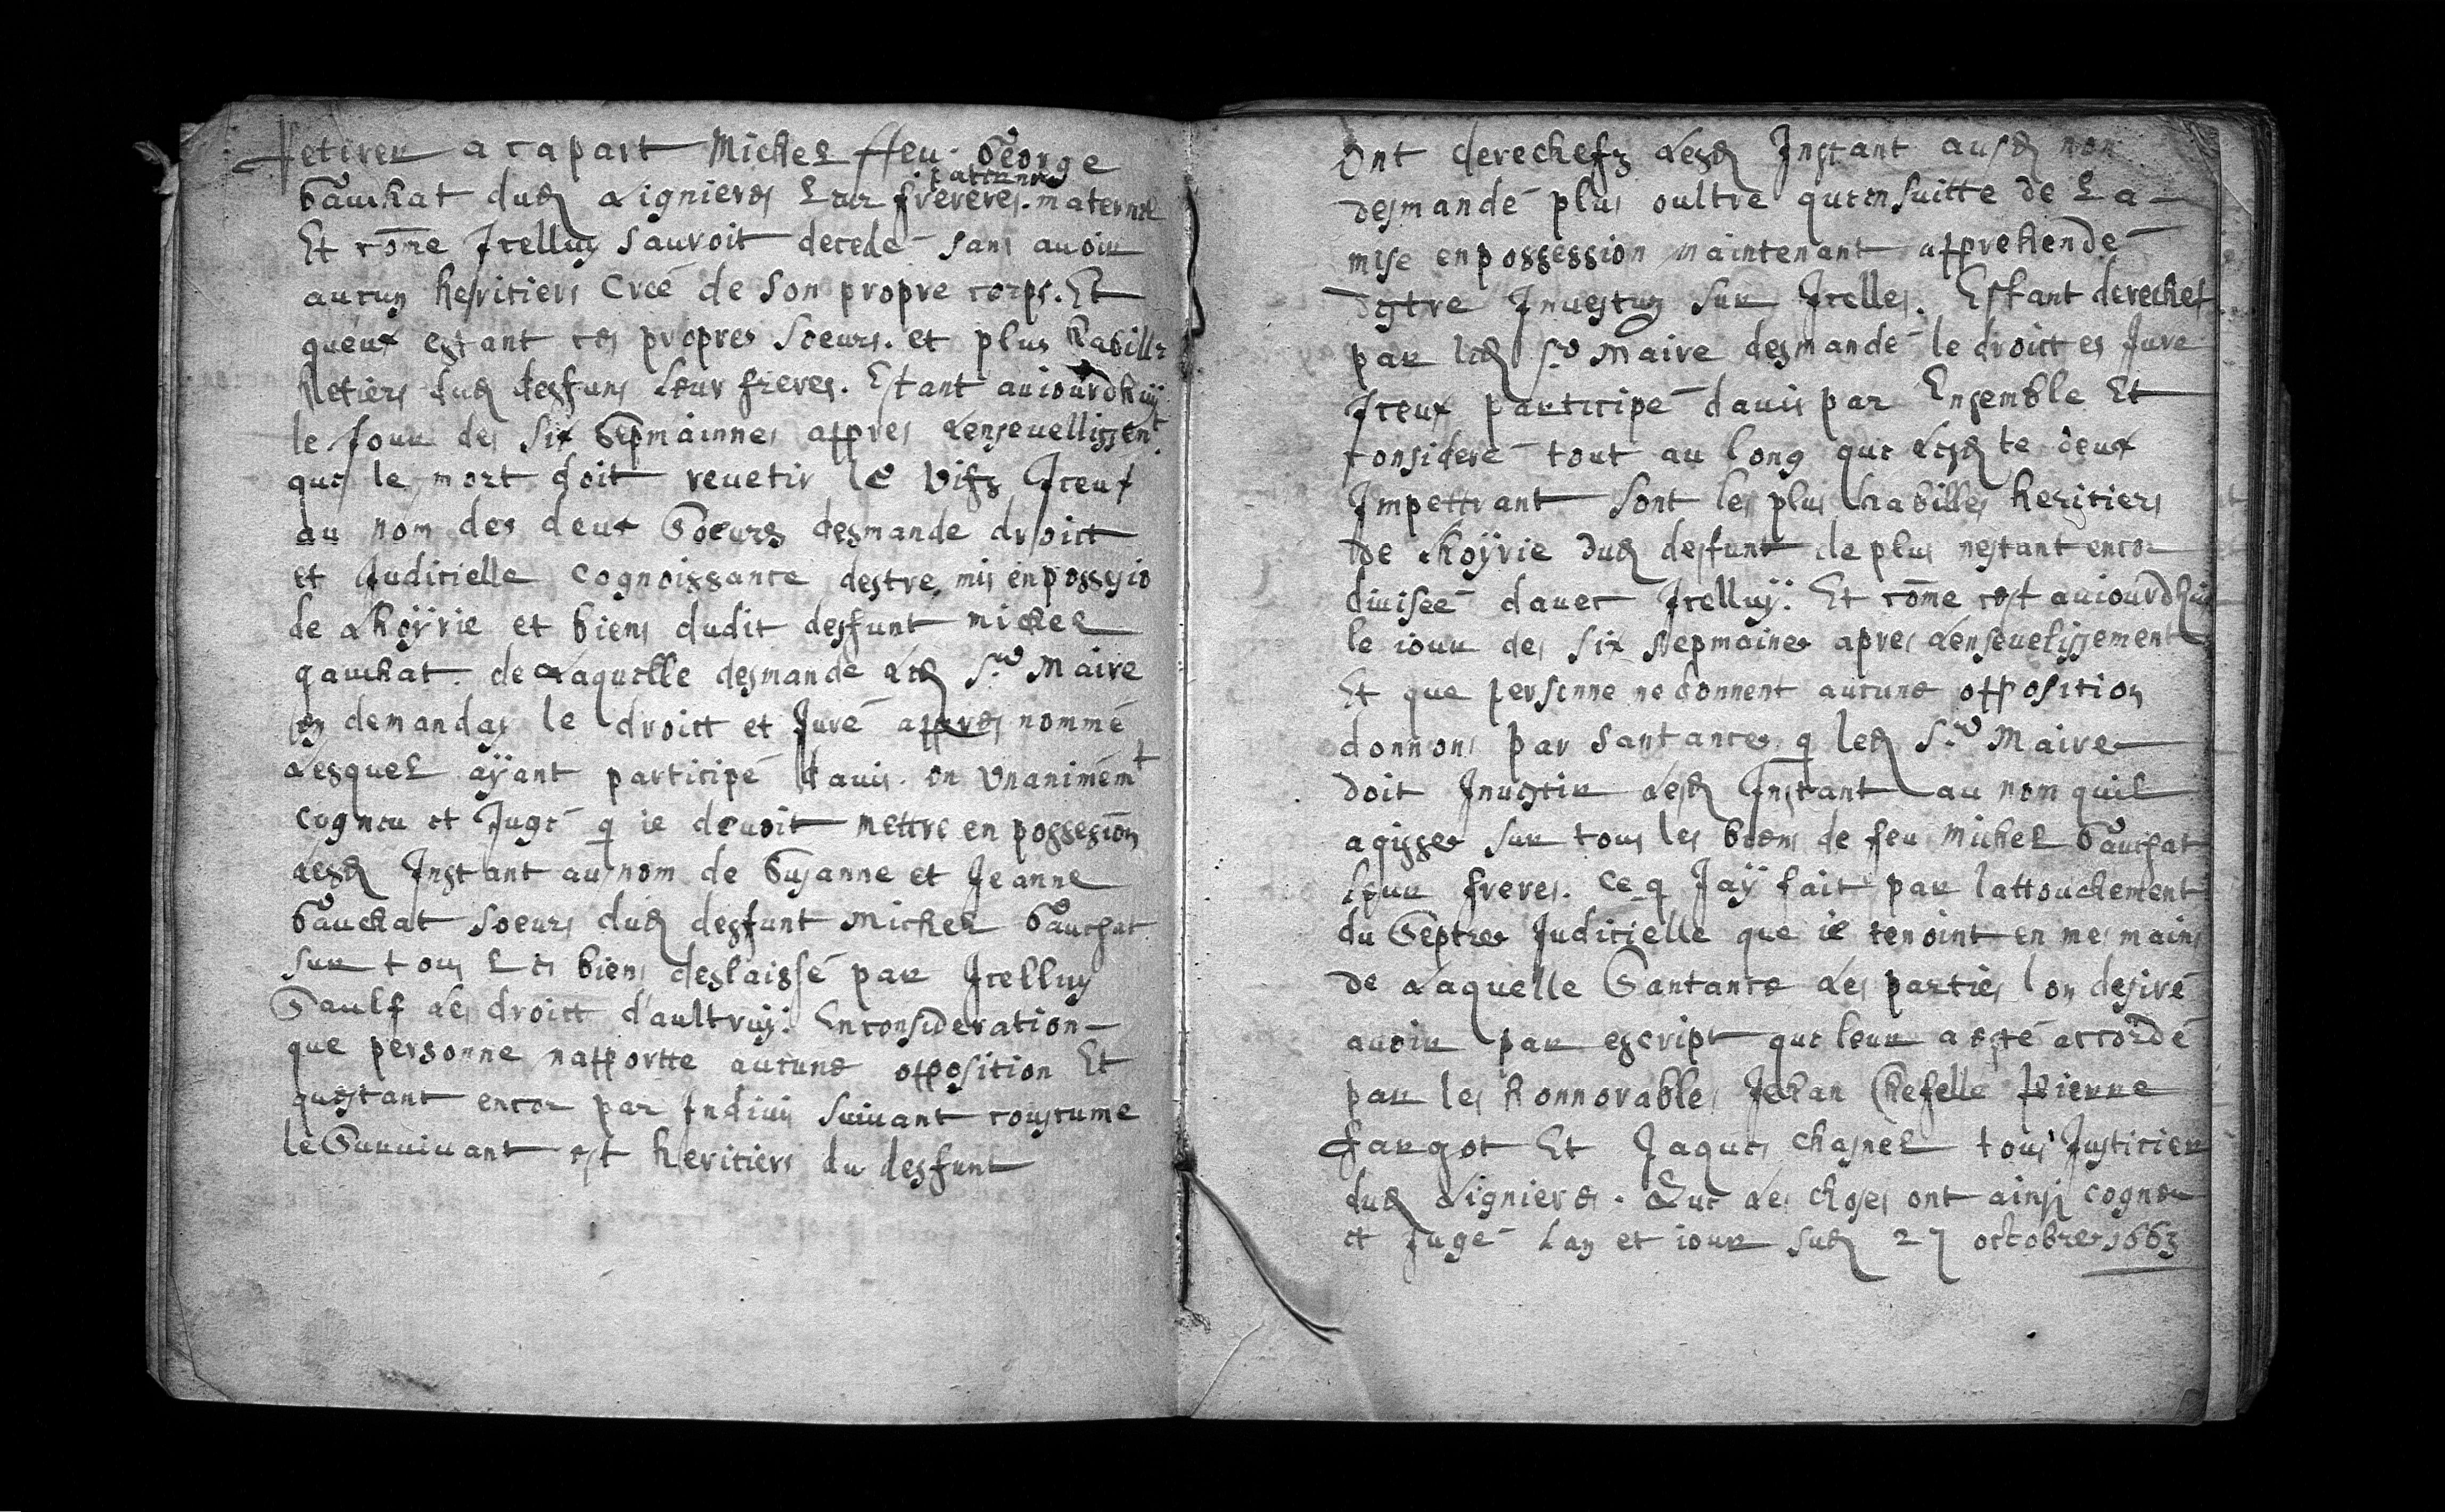 retirer a capart Michel ffeu George
Gauchat dud Lignieres Leur frereres. maternel
paternel
Et cōme Icelluy Sauroit decedé sans auoir
aucuns hesritiers Creé de Son propre corps. Et
queux estant ces propres Soeurs. et plus habille
hetiers dud desfuns Leur freres. Estant auiourdhuÿ
le Jour des Six Sepmainnes appres Lenseuellissent
que le mort doit reuetir le Vifz Iceux
au nom des deux Soeurs desmande droict
et Judicielle Cognoissance destre mis en possessio
de Lhoÿrie et biens dudit desfunt michel
gauchat. de Laquelle desmande Led Sr Maire
en demanday le droict et Juré appres nommé
Lesquel aÿant participé dauis. on Vnanimemt
Cogneu et Jugé q ie deuoit mettre en possesion
Lesd Instant au nom de Susanne et Jeanne
Gauchat Soeurs dud desfunt Michel Gauchat
sur tous Les biens deslaissé par Icelluy
Saulf Les droict d'aultruÿ. En consideration
que personne napportte aucune opposition Et
questant encor par Indiuis Suiuant coustume
le Suruiuant est heritiers du desfunt
Ont derechefz Lesd Instant ausd nom
desmandé plus oultre qu'en Suitte de La
mise en possession maintenant apprehendé
destre Inuestuz Sur Icelles. Estant derechef
par led Sr Maire desmandé le droict es Juré
Iceux participé dauis par Ensemble Et
consideré tout au long que Lesd te deux
Impettrant Sont les plus habilles heritiers
de Lhoÿrie dud desfunt de plus nestant encor
diuiseé dauec Icelluÿ. Et cōme cest auiourdhuy
le iour des Six Sepmaines apres Lenseuelissement
Et que personne ne donnent aucune opposition
donnons par Santance q led Sr Maire
doit Inuestir Lesd Instant au nom quil
agisse sur tous les biens de feu Michel Gauchat
leur freres. Ce q Jaÿ fait par lattouchement
du Septre Judicielle que ie tenoint en mes mains
de Laquelle Santance Les parties on desiré
auoir par escript que leur a esté accordé
par les honnorables Jehan Chefelle Pierre
Jargot Et Jaques Chasnel tous Justicier
dud Lignieres. Que Les choses ont ainsi cogneu
et Jugé Lan et iour Sud 27 octobre 1663